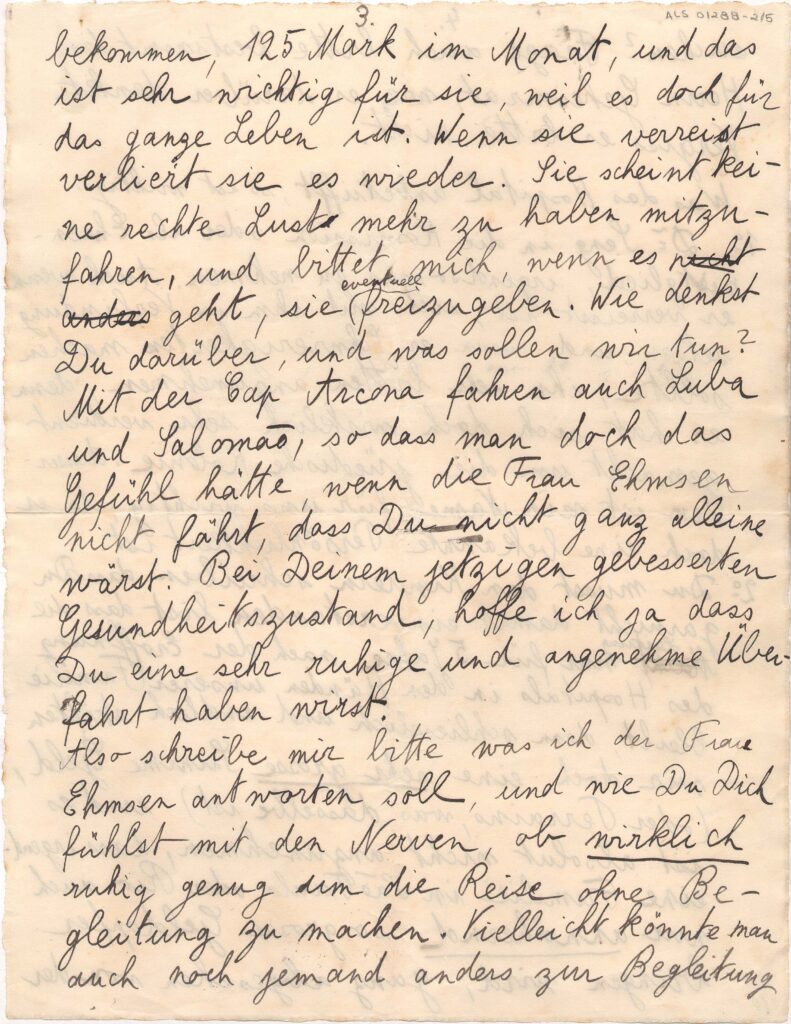 3.
ALS 01288-2/5
bekommen, 125 Mark im Monat, und das
ist sehr wichtig für sie, weil es doch für
das ganze Leben ist. Wenn sie verreist
verliert sie es wieder. Sie scheint kei-
ne rechte Lust mehr zu haben mitzu-
fahren, und bittet mich, wenn es nicht
anders geht, sie eventuell freizugeben. Wie denkst
Du darüber, und was sollen wir tun?
Mit der Cap Arcona fahren auch Luba
und Salomão, so dass man doch das
Gefühl hätte, wenn die Frau Ehmsen
nicht fährt, dass Du nicht ganz alleine
wärst. Bei Deinem jetzigen gebesserten
Gesundheitszustand, hoffe ich ja dass
Du eine sehr ruhige und angenehme Über-
fahrt haben wirst.
Also schreibe mir bitte was ich der Frau
Ehmsen antworten soll, und wie Du Dich
fühlst mit den Nerven, ob wirklich
ruhig genug um die Reise ohne Be-
gleitung zu machen. Vielleicht könnte man
auch noch jemand anders zur Begleitung